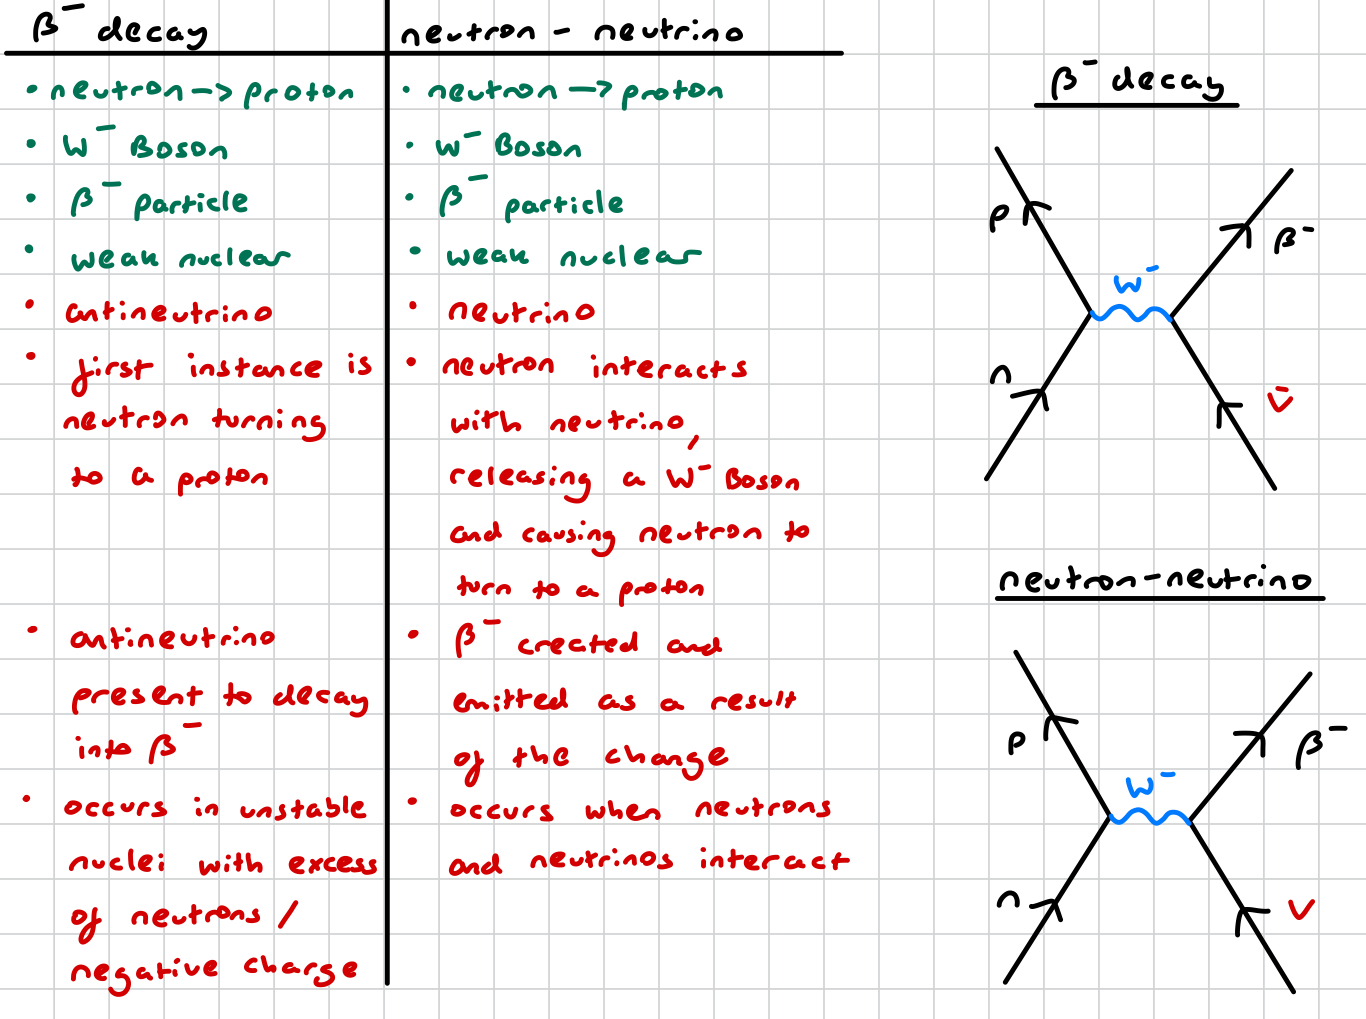 β⁻ decay
• neutron -> proton
• W⁻ Boson
• β⁻ particle
• weak nuclear
• antineutrino
• first instance is
neutron turning
to a proton
• antineutrino
present to decay
into β⁻
• occurs in unstable
nuclei with excess
of neutrons /
negative charge
neutron - neutrino
• neutron -> proton
• W⁻ Boson
• β⁻ particle
• weak nuclear
• neutrino
• neutron interacts
with neutrino,
releasing a W⁻ Boson
and causing neutron to
turn to a proton
• β⁻ created and
emitted as a result
of the change
• occurs when neutrons
and neutrinos interact
β⁻ decay
p
β⁻
W⁻
n
v̄
neutron-neutrino
p
β⁻
W⁻
n
v